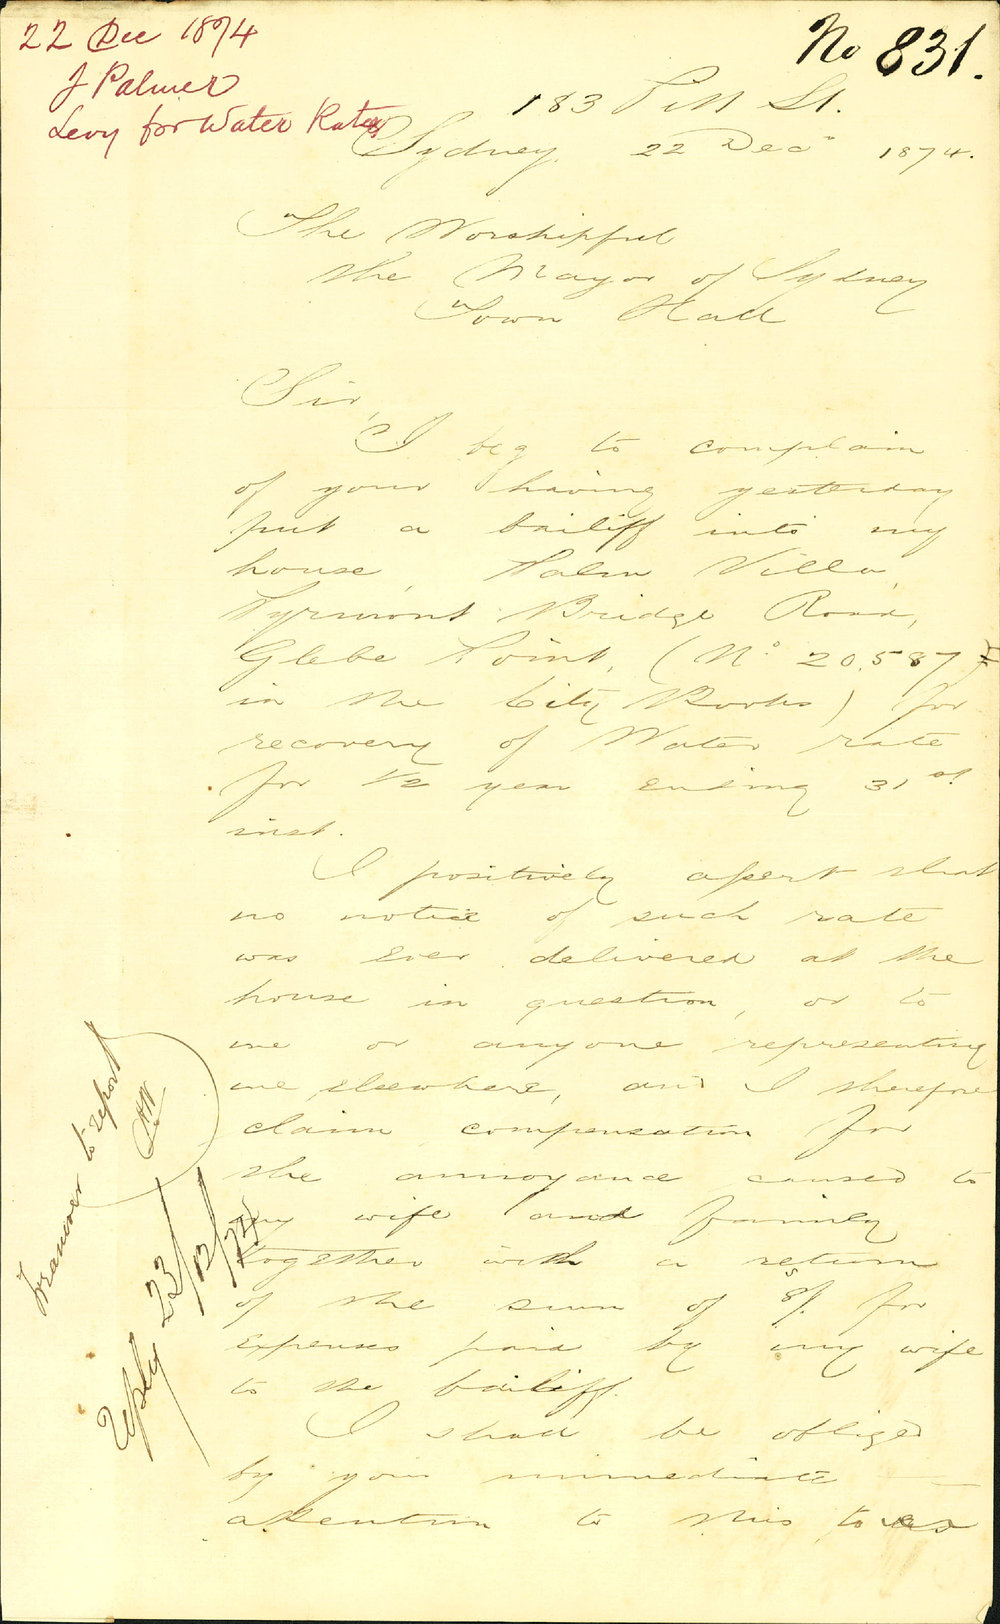 22 Dec 1874
J Palmer
Levy for Water Rates
No 831.
183 Pitt St.
Sydney. 22 Decr 1874.
The Worshipful
the Mayor of Sydney
Town Hall
Sir,
I beg to complain
of your having yesterday
put a bailiff into my
house, Palm Villa,
Pyrmont Bridge Road,
Glebe Point, (No 20,587
in the City Books) for
recovery of Water rate
for 1/2 year ending 31st
inst.
I positively assert that
no notice of such rate
was ever delivered at the
house in question, or to
me or anyone representing
me elsewhere, and I therefore
claim compensation for
the annoyance caused to
my wife and family
together with a return
of the sum of 8s/. for
expenses paid by my wife
to the bailiff.
I shall be obliged
by your immediate
attention to this to
to report
Reply 23/12/74